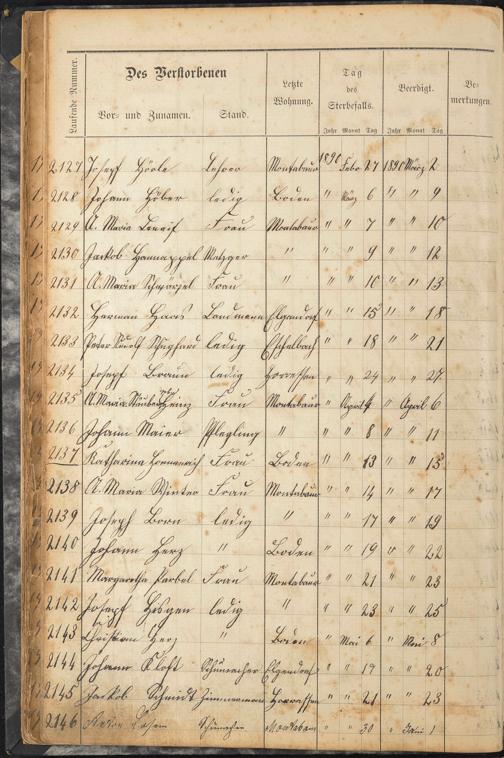 Laufende Nummer.
Des Verstorbenen
Vor- und Zunamen.
Stand.
Letzte Wohnung.
Tag des Sterbefalls.
Jahr Monat Tag
Beerdigt.
Jahr Monat Tag
Bemerkungen.
2127 Josef Lehrer Montabaur 1890 Febr 27 1890 März 2
2128 Johann Höber ledig Boden " März 6 " " 9
2129 A. Maria Frau Montabaur " " 7 " " 10
2130 Jackob Hannappel Metzger " " " 9 " " 12
2131 A. Maria Frau " " " 10 " " 13
2132 Herman Haas Landmann Elgendorf " " 15 " " 18
2133 Peter Rudolf ledig Eschelbach " " 18 " " 21
2134 Josepf Braun ledig Horressen " " 24 " " 27
2135 A. Maria Heinz Frau Montabaur " April 4 " April 6
2136 Johann Maier Pflegling " " " 8 " " 11
2137 Katharina Frau Boden " " 13 " " 15
2138 A. Maria Winter Frau Montabaur " " 14 " " 17
2139 Joseph Born ledig " " " 17 " " 19
2140 Johann Herz " Boden " " 19 " " 22
2141 Margaretha Frau Montabaur " " 21 " " 23
2142 Josepf ledig " " " 23 " " 25
2143 Christian Herz " Boden " Mai 6 " Mai 8
2144 Johann Kloft Schumacher Elgendorf " " 17 " " 20
2145 Jackob Schmidt Zimmermann Horressen " " 21 " " 23
2146 Schumacher Montabaur " " 30 " Juni 1